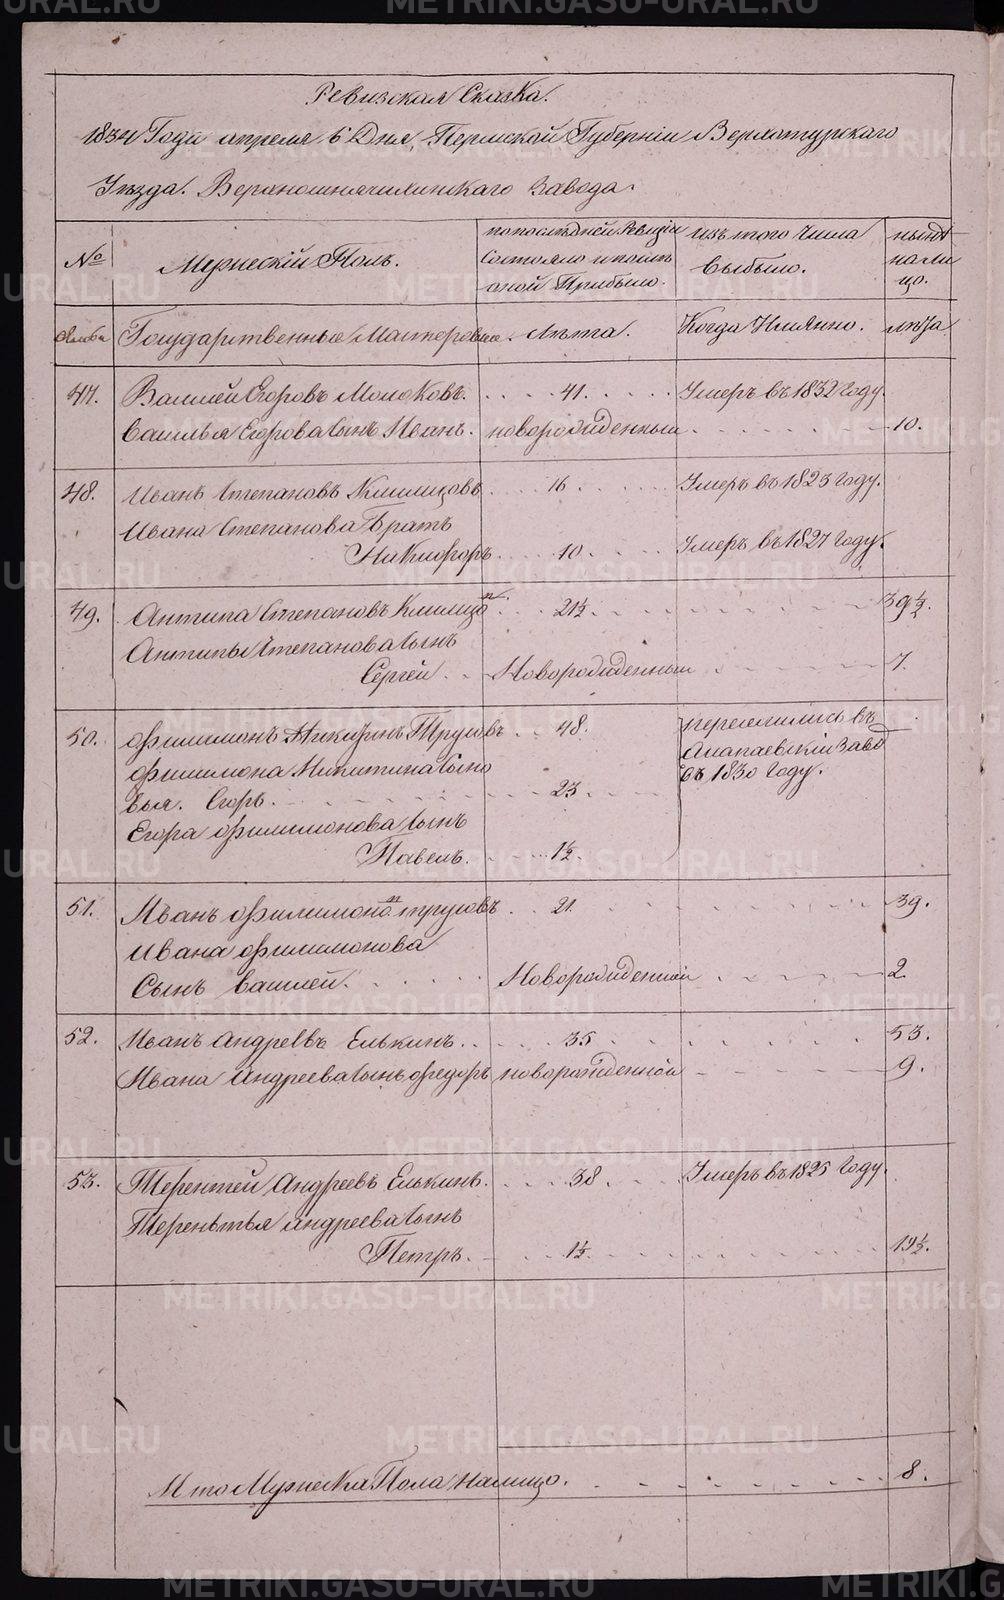 Ревизская Сказка.
1834 Года апреля 6 Дня, Пермской Губернiи Верхотурскаго
Уѣзда. Завода.
№ Мужескiй Полъ. по последней Ревизiи Состояло и после оной Прибыло. изъ того Числа выбыло. нынѣ на лицо.
Государственные Мастеровые. Лѣта. Когда Имянно. лѣта
47. Василей Егоровъ Молоковъ. 41. Умеръ въ 1832 Году.
Василья Егорова сынъ Иванъ. новорожденный 10.
48. Иванъ Степановъ Климцовъ 16 Умеръ въ 1823 Году.
Ивана Степанова Братъ
Никифоръ 10. Умеръ въ 1827 Году.
49. Антипа Степановъ 21½ 39½.
Антипы Степанова сынъ
Сергей Новорожденный 7.
50. Филимонъ Никитинъ Трусовъ 48. переселились въ
Филимона Никитина сыно Алапаевскiй Завод
вья. Егоръ. 23 въ 1830 Году.
Егора Филимонова сынъ
Павелъ. 1½.
51. Иванъ Филимоно трусовъ 21. 39.
Ивана Филимонова
Сынъ василей. Новорожденной 2
52. Иванъ Андреевъ Елькинъ. 35 53.
Ивана Андреева сынъ Федоръ новорожденной 9.
53. Терентей Андреевъ Елькинъ. 38 Умеръ въ 1825 Году.
Терентья Андреева сынъ
Петръ. 1½ 19½.
Итого Мужеска Пола налицо. 8.
METRIKI.GASO-URAL.RU